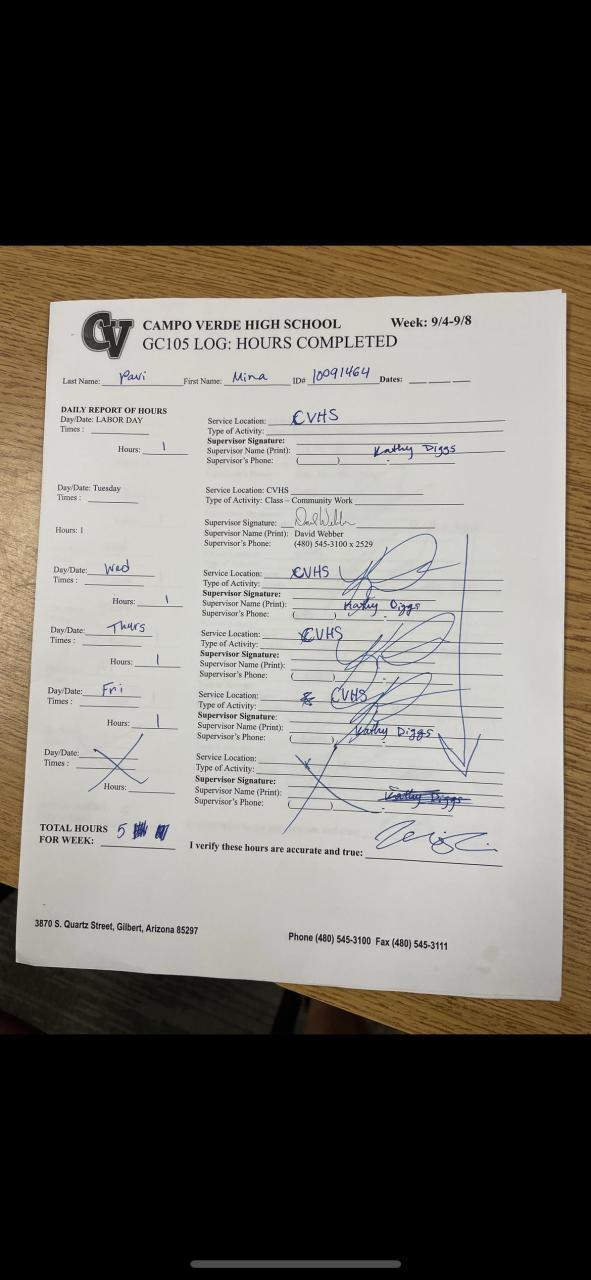 CV
CAMPO VERDE HIGH SCHOOL Week: 9/4-9/8
GC105 LOG: HOURS COMPLETED
Last Name: Pavi First Name: Mina ID# 10091464 Dates:
DAILY REPORT OF HOURS
Day/Date: LABOR DAY
Times :
Hours: 1
Service Location: CVHS
Type of Activity:
Supervisor Signature:
Supervisor Name (Print): Kathy Diggs
Supervisor's Phone: ( ) -
Day/Date: Tuesday
Times :
Hours: 1
Service Location: CVHS
Type of Activity: Class – Community Work
Supervisor Signature: David Webber
Supervisor Name (Print): David Webber
Supervisor's Phone: (480) 545-3100 x 2529
Day/Date: Wed
Times :
Hours: 1
Service Location: CVHS
Type of Activity:
Supervisor Signature:
Supervisor Name (Print): Kathy Diggs
Supervisor's Phone: ( ) -
Day/Date: Thurs
Times :
Hours: 1
Service Location: CVHS
Type of Activity:
Supervisor Signature:
Supervisor Name (Print):
Supervisor's Phone: ( ) -
Day/Date: Fri
Times :
Hours: 1
Service Location: CVHS
Type of Activity:
Supervisor Signature:
Supervisor Name (Print): Kathy Diggs
Supervisor's Phone: ( )
Day/Date:
Times :
Hours:
Service Location:
Type of Activity:
Supervisor Signature:
Supervisor Name (Print): Kathy Diggs
Supervisor's Phone: ( ) -
TOTAL HOURS 5
FOR WEEK:
I verify these hours are accurate and true:
3870 S. Quartz Street, Gilbert, Arizona 85297
Phone (480) 545-3100 Fax (480) 545-3111